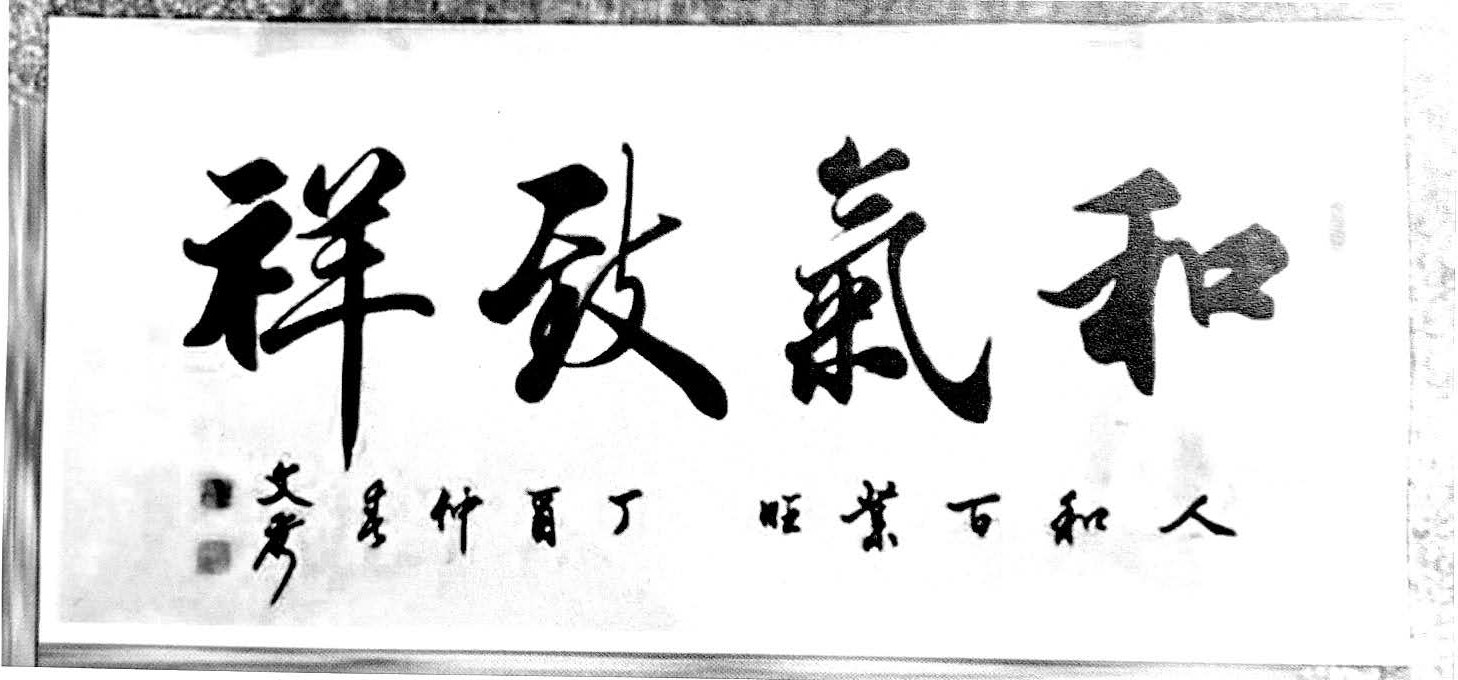 和氣致祥
人和百業旺 丁酉仲春